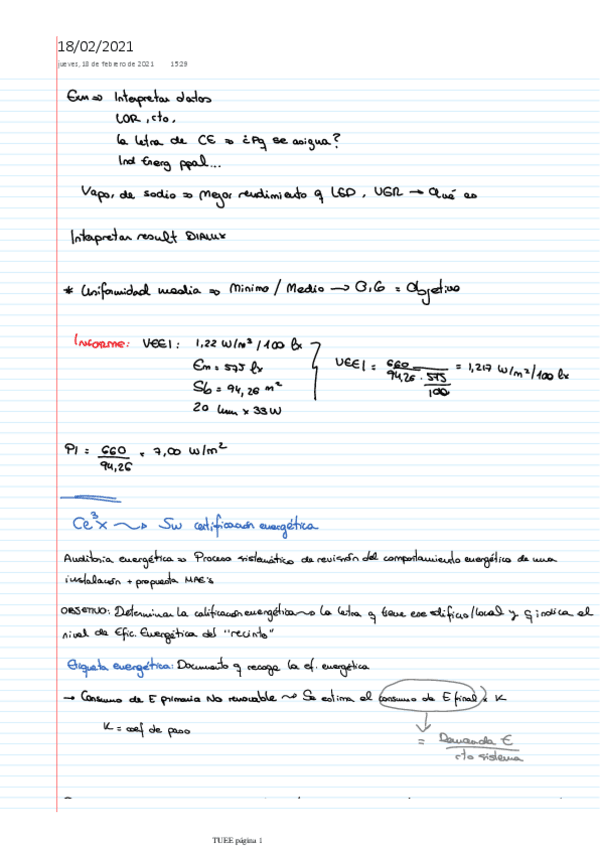 18/02/2021
jueves, 18 de febrero de 2021 15:29
Em => Interpretar datos
LOR, cto,
la letra de CE => ¿Pq se asigna?
Ind Energ ppal...
Vapor de sodio => Mejor rendimiento q LED, UGR → Qué es
Interpretar result DIALUX
* Uniformidad media => Mínimo / Medio → 0,6 = Objetivo
INFORME: VEEI: 1,22 W/m² / 100 lx
Em = 575 lx
Sb = 94,26 m²
20 lum x 33W
VEEI = 660 / (94,26 · 575/100) = 1,217 W/m² / 100 lx
PI = 660 / 94,26 = 7,00 W/m²
Ce³x → Sw certificación energética
Auditoria energética => Proceso sistemático de revisión del comportamiento energético de una
instalación + propuesta MAE's
OBJETIVO: Determinar la calificación energética → la letra q tiene ese edificio/local y q indica el
nivel de Efic. Energética del "recinto"
Etiqueta energética: Documento q recoge la ef. energética
→ Consumo de E primaria No renovable ~ Se estima el consumo de E final x K
K = coef de paso
= Demanda E / rto sistema
TUEE página 1